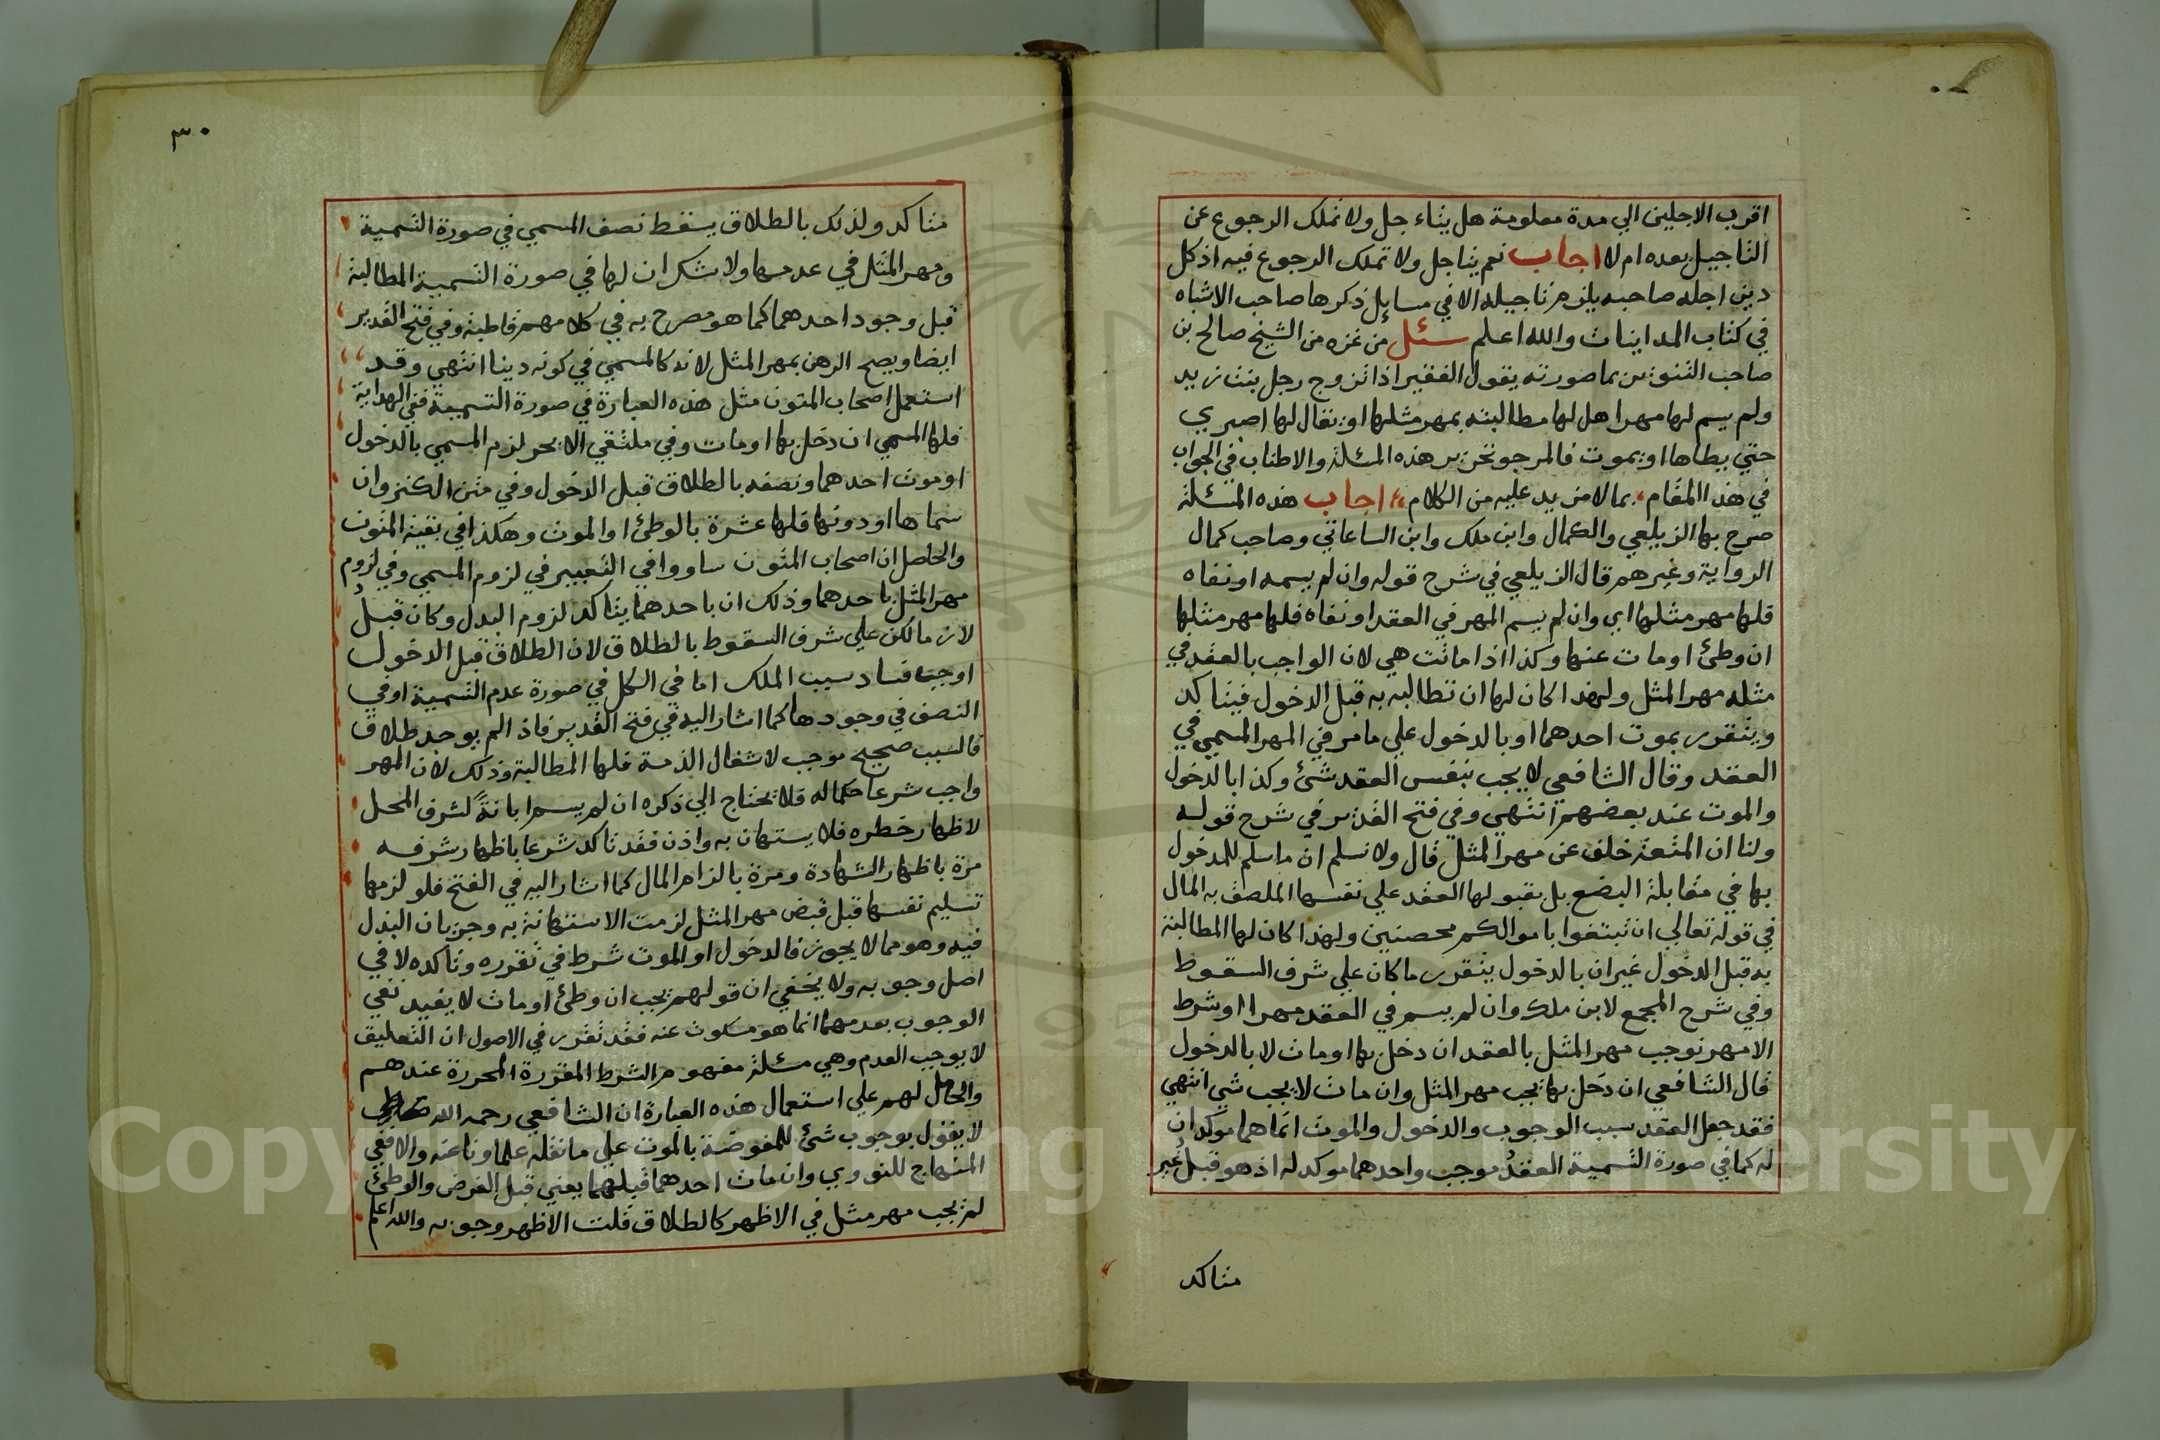 اقرب الاجلين الي مدة معلومة هل يتاءجل ولا تملك الرجوع عن
التاجيل بعده ام لا اجاب نعم يتاجل ولا تملك الرجوع فيه اذ كل
دين اجله صاحبه يلزم تاجيله الا في مسايل ذكرها صاحب الاشباه
في كتاب المداينات والله اعلم سئل من غزه من الشيخ صالح بن
صاحب التنوير بما صورته يقول الفقير اذا تزوج رجل بنت زيد
ولم يسم لها مهرا هل لها مطالبته بمهر مثلها او يقال لها اصبري
حتي يطاها او يموت فالمرجو تحرير هذه المسئلة والاطناب في الجواب
في هذا المقام بما لا مزيد عليه من الكلام اجاب هذه المسئلة
صرح بها الزيلعي والكمال وابن ملك وابن الساعاتي وصاحب كمال
الرواية وغيرهم قال الزيلعي في شرح قوله وان لم يسمه او نفاه
فلها مهر مثلها اي وان لم يسم المهر في العقد او نفاه فلها مهر مثلها
ان وطئ او مات عنها وكذا اذا ماتت هي لان الواجب بالعقد في
مثله مهر المثل ولهذا كان لها ان تطالبه به قبل الدخول فيتاكد
ويتقرر بموت احدهما او بالدخول علي ما مر في المهر المسمي في
العقد وقال الشافعي لا يجب بنفس العقد شئ وكذا بالدخول
والموت عند بعضهم انتهي وفي فتح القدير في شرح قوله
ولنا ان المتعة خلف عن مهر المثل قال ولا نسلم ان ما سلم للمدخول
بها في مقابلة البضع بل بقبولها العقد علي نفسها الملصق به المال
في قوله تعالي ان تبتغوا باموالكم محصنين ولهذا كان لها المطالبة
به قبل الدخول غير ان بالدخول يتقرر ما كان علي شرف السقوط
وفي شرح المجمع لابن ملك وان لم يسم في العقد مهرا او شرط
الا مهر نوجب مهر المثل بالعقد ان دخل بها او مات لا بالدخول
قال الشافعي ان دخل بها يجب مهر المثل وان مات لا يجب شي انتهي
فقد جعل العقد سبب الوجوب والدخول والموت انما هما موكدان
له كما في صورة التسمية العقد موجب واحدهما موكد له اذ هو قبل غير
متاكد
٣٠
متاكد ولذلك بالطلاق يسقط نصف المسمي في صورة التسمية
ومهر المثل في عدمها ولا شك ان لها في صورة التسمية المطالبة
قبل وجود احدهما كما هو مصرح به في كلامهم قاطبة وفي فتح القدير
ايضا ويصح الرهن بمهر المثل لانه كالمسمي في كونه دينا انتهي وقد
استعمل اصحاب المتون مثل هذه العبارة في صورة التسمية ففي الهداية
فلها المسمي ان دخل بها او مات وفي ملتقي الابحر لزم المسمي بالدخول
او موت احدهما ونصفه بالطلاق قبل الدخول وفي متن الكنز وان
سماها او دونها فلها عشرة بالوطئ او الموت وهكذا في بقية المتون
والحاصل ان اصحاب المتون ساووا في التعبير في لزوم المسمي وفي لزوم
مهر المثل باحدهما وذلك ان باحدهما يتاكد لزوم البدل وكان قبل
لازما لكن علي شرف السقوط بالطلاق لان الطلاق قبل الدخول
اوجب فساد سبب الملك اما في الكل في صورة عدم التسمية او في
النصف في وجودها كما اشار اليه في فتح القدير فاذا لم يوجد طلاق
فالسبب صحيح موجب لاشغال الذمة فلها المطالبة وذلك لان المهر
واجب شرعا كماله فلا يحتاج الي ذكره ان لم يسم ابانةً لشرف المحل
لاظهار خطره فلا يستهان به واذن فقد تاكد شرعا باظهار شرفه
مرة باظهار الشهادة ومرة بالزام المال كما اشار اليه في الفتح فلو لزمها
تسليم نفسها قبل قبض مهر المثل لزمت الاستهانة به وجريان البدل
فيه وهو مما لا يجوز فالدخول او الموت شرط في تقرره وتاكده لا في
اصل وجوبه ولا يخفي ان قولهم يجب ان وطئ او مات لا يفيد نفي
الوجوب بعدمهما انما هو مسكوت عنه فقد تقرر في الاصول ان التعليق
لا يوجب العدم وهي مسئلة مفهوم الشرط المقررة المحررة عندهم
والحامل لهم علي استعمال هذه العبارة ان الشافعي رحمه الله
لا يقول بوجوب شئ للمفوضة بالموت علي ما نقله علماونا عنه والا ففي
المنهاج للنووي وان مات احدهما قبلهما يعني قبل الفرض والوطئ
لم يجب مهر مثل في الاظهر كالطلاق قلت الاظهر وجوبه والله اعلم